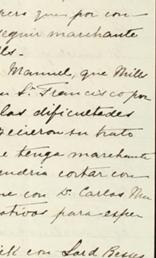 que por con
seguir marchante
Manuel, que Mills
Sn. Francisco por
las dificultades
hicieron su trato
e tenga marchante
endria cortar con
me con D. Carlos Mu
ativos para espe
con Lord